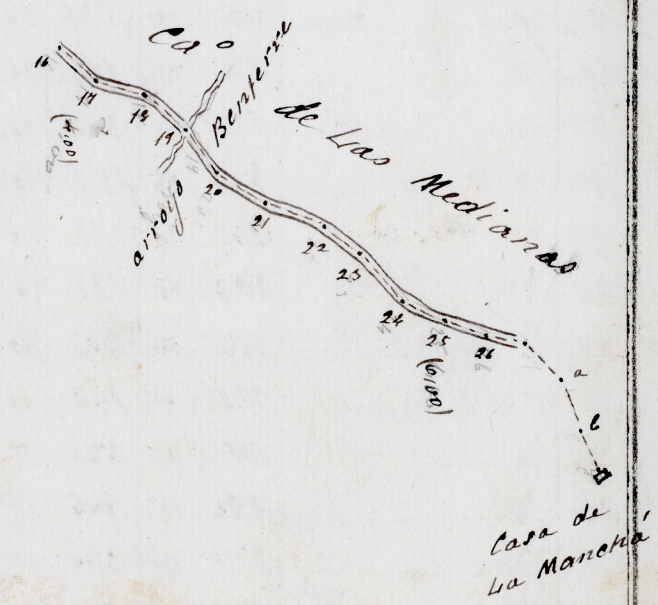 Ca⁰ de Las Medianas
arroyo Benferre
16
17
(4,00)
18
19
20
21
22
23
24
25
(6,00)
26
a
b
Casa de
La Manchá